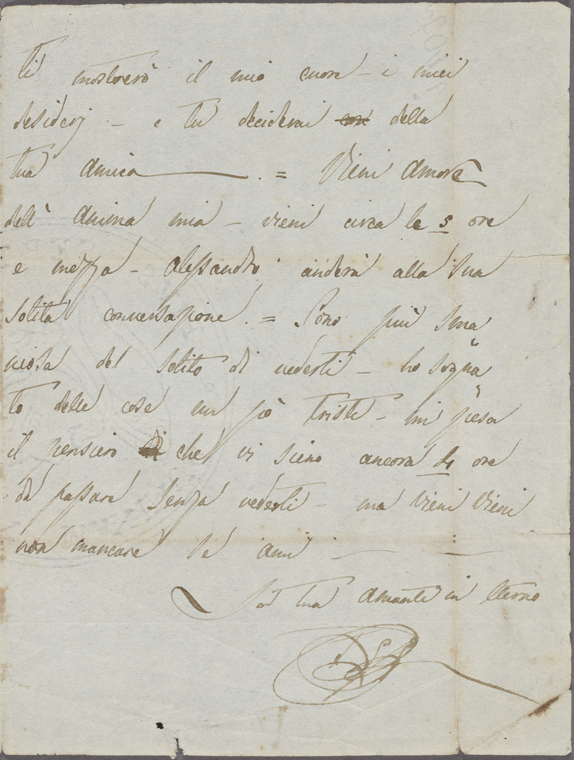 ti mostrerò il mio cuore – i miei
desiderj – e tu deciderai della
tua amica — . = Vieni Amore
dell' Anima mia – vieni circa le 5 ore
e mezza – Alessandro anderà alla sua
solita conversazione . = Sono più sma
niosa del solito di vederti – ho sogna
to delle cose un pò triste – mi pesa
il pensiero che vi sieno ancora 4 ore
da passare senza vederti – ma vieni vieni
non mancare se ami —
tua amante in Eterno